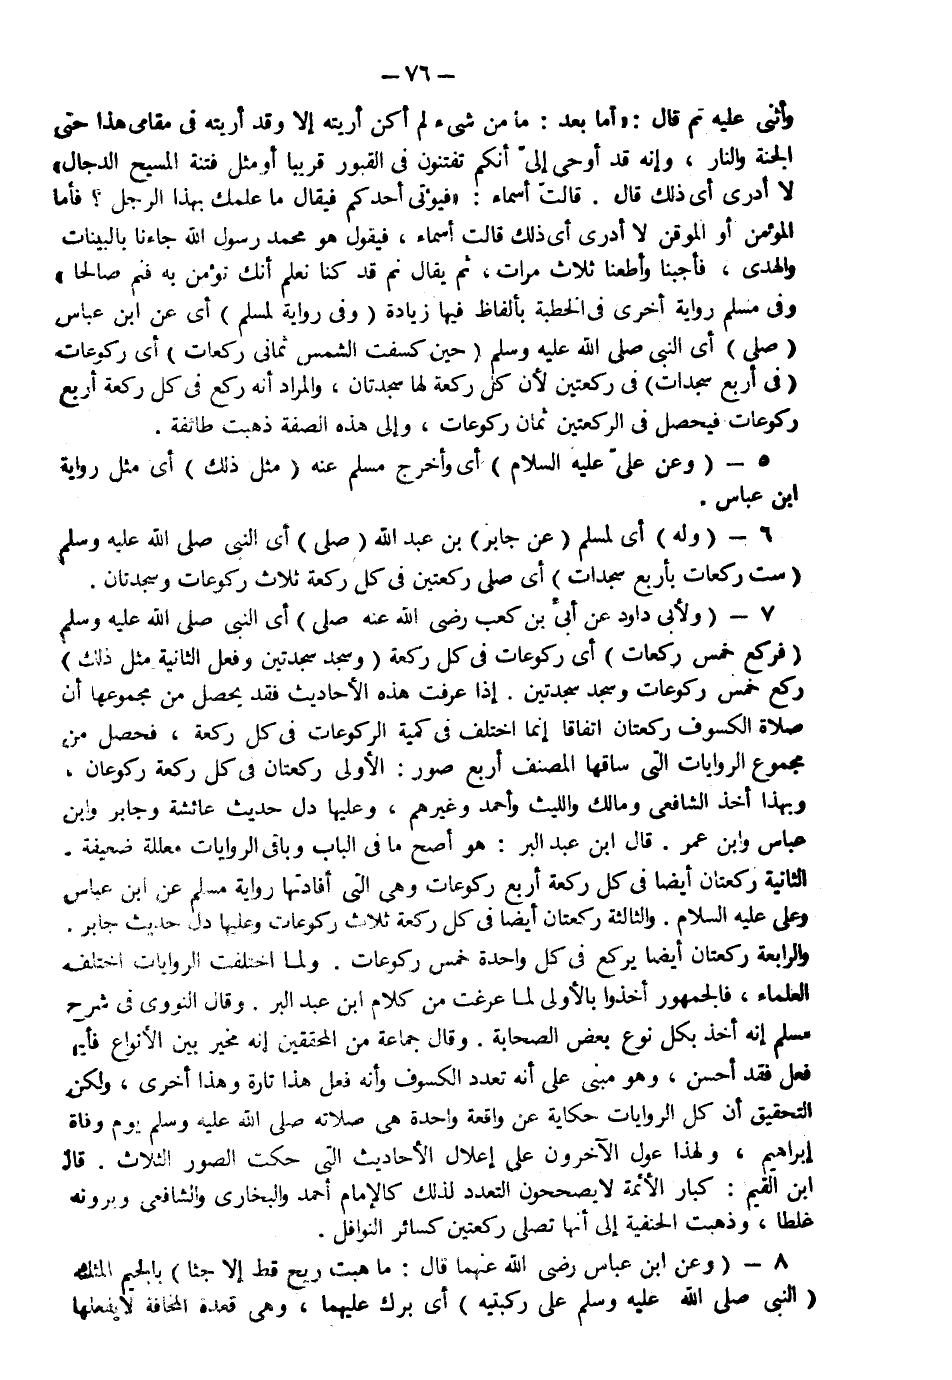 — ٧٦ —
وأثنى عليه ثم قال : «أما بعد : ما من شىء لم أكن أريته إلا وقد أريته فى مقامى هذا حتى
الجنة والنار ، وإنه قد أوحى إلىّ أنكم تفتنون فى القبور قريبا أو مثل فتنة المسيح الدجال»
لا أدرى أى ذلك قال . قالت أسماء : «فيؤتى أحدكم فيقال ما علمك بهذا الرجل ؟ فأما
المؤمن أو الموقن لا أدرى أى ذلك قالت أسماء ، فيقول هو محمد رسول الله جاءنا بالبينات
والهدى ، فأجبنا وأطعنا ثلاث مرات ، ثم يقال نم قد كنا نعلم أنك تؤمن به فنم صالحا »
وفى مسلم رواية أخرى فى الخطبة بألفاظ فيها زيادة ( وفى رواية لمسلم ) أى عن ابن عباس
( صلى ) أى النبى صلى الله عليه وسلم ( حين كسفت الشمس ثمانى ركعات ) أى ركوعات
( فى أربع سجدات) فى ركعتين لأن كل ركعة لها سجدتان ، والمراد أنه ركع فى كل ركعة أربع
ركوعات فيحصل فى الركعتين ثمان ركوعات ، وإلى هذه الصفة ذهبت طائفة .
٥ — ( وعن علىّ عليه السلام ) أى وأخرج مسلم عنه ( مثل ذلك ) أى مثل رواية
ابن عباس .
٦ — ( وله ) أى لمسلم ( عن جابر ) بن عبد الله ( صلى ) أى النبى صلى الله عليه وسلم
( ست ركعات بأربع سجدات ) أى صلى ركعتين فى كل ركعة ثلاث ركوعات وسجدتان .
٧ — ( ولأبى داود عن أبىّ بن كعب رضى الله عنه صلى ) أى النبى صلى الله عليه وسلم
( فركع خمس ركعات ) أى ركوعات فى كل ركعة ( وسجد سجدتين وفعل الثانية مثل ذلك )
ركع خمس ركوعات وسجد سجدتين . إذا عرفت هذه الأحاديث فقد يحصل من مجموعها أن
صلاة الكسوف ركعتان اتفاقا إنما اختلف فى كمية الركوعات فى كل ركعة ، فحصل من
مجموع الروايات التى ساقها المصنف أربع صور : الأولى ركعتان فى كل ركعة ركوعان ،
وبهذا أخذ الشافعى ومالك والليث وأحمد وغيرهم ، وعليها دل حديث عائشة وجابر وابن
عباس وابن عمر . قال ابن عبد البر : هو أصح ما فى الباب وباقى الروايات معللة ضعيفة .
الثانية ركعتان أيضا فى كل ركعة أربع ركوعات وهى التى أفادتها رواية مسلم عن ابن عباس
وعلى عليه السلام . والثالثة ركعتان أيضا فى كل ركعة ثلاث ركوعات وعليها دل حديث جابر .
والرابعة ركعتان أيضا يركع فى كل واحدة خمس ركوعات . ولما اختلفت الروايات اختلف
العلماء ، فالجمهور أخذوا بالأولى لما عرغت من كلام ابن عبد البر . وقال النووى فى شرح
مسلم إنه أخذ بكل نوع بعض الصحابة . وقال جماعة من المحققين إنه مخير بين الأنواع فأيها
فعل فقد أحسن ، وهو مبنى على أنه تعدد الكسوف وأنه فعل هذا تارة وهذا أخرى ، ولكن
التحقيق أن كل الروايات حكاية عن واقعة واحدة هى صلاته صلى الله عليه وسلم يوم وفاة
إبراهيم ، ولهذا عول الآخرون على إعلال الأحاديث التى حكت الصور الثلاث . قال
ابن القيم : كبار الأئمة لا يصححون التعدد لذلك كالإمام أحمد والبخارى والشافعى ويرونه
غلطا ، وذهبت الحنفية إلى أنها تصلى ركعتين كسائر النوافل .
٨ — ( وعن ابن عباس رضى الله عنهما قال : ما هبت ريح قط إلا جثا ) بالجيم المثلثة
( النبى صلى الله عليه وسلم على ركبتيه ) أى برك عليهما ، وهى قعدة المخافة لا يفعلها